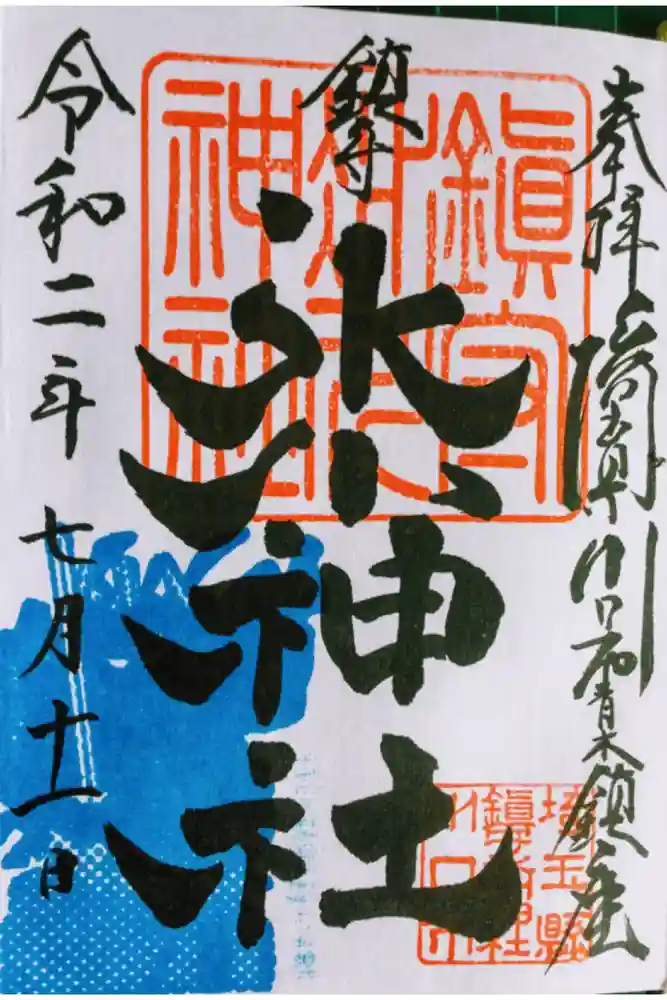 奉拝 埼玉県川口市青木鎮座
鎮守
氷川神社
令和二年 七月十一日
鎮守
氷川
神社
埼玉縣
鎮守社
川口